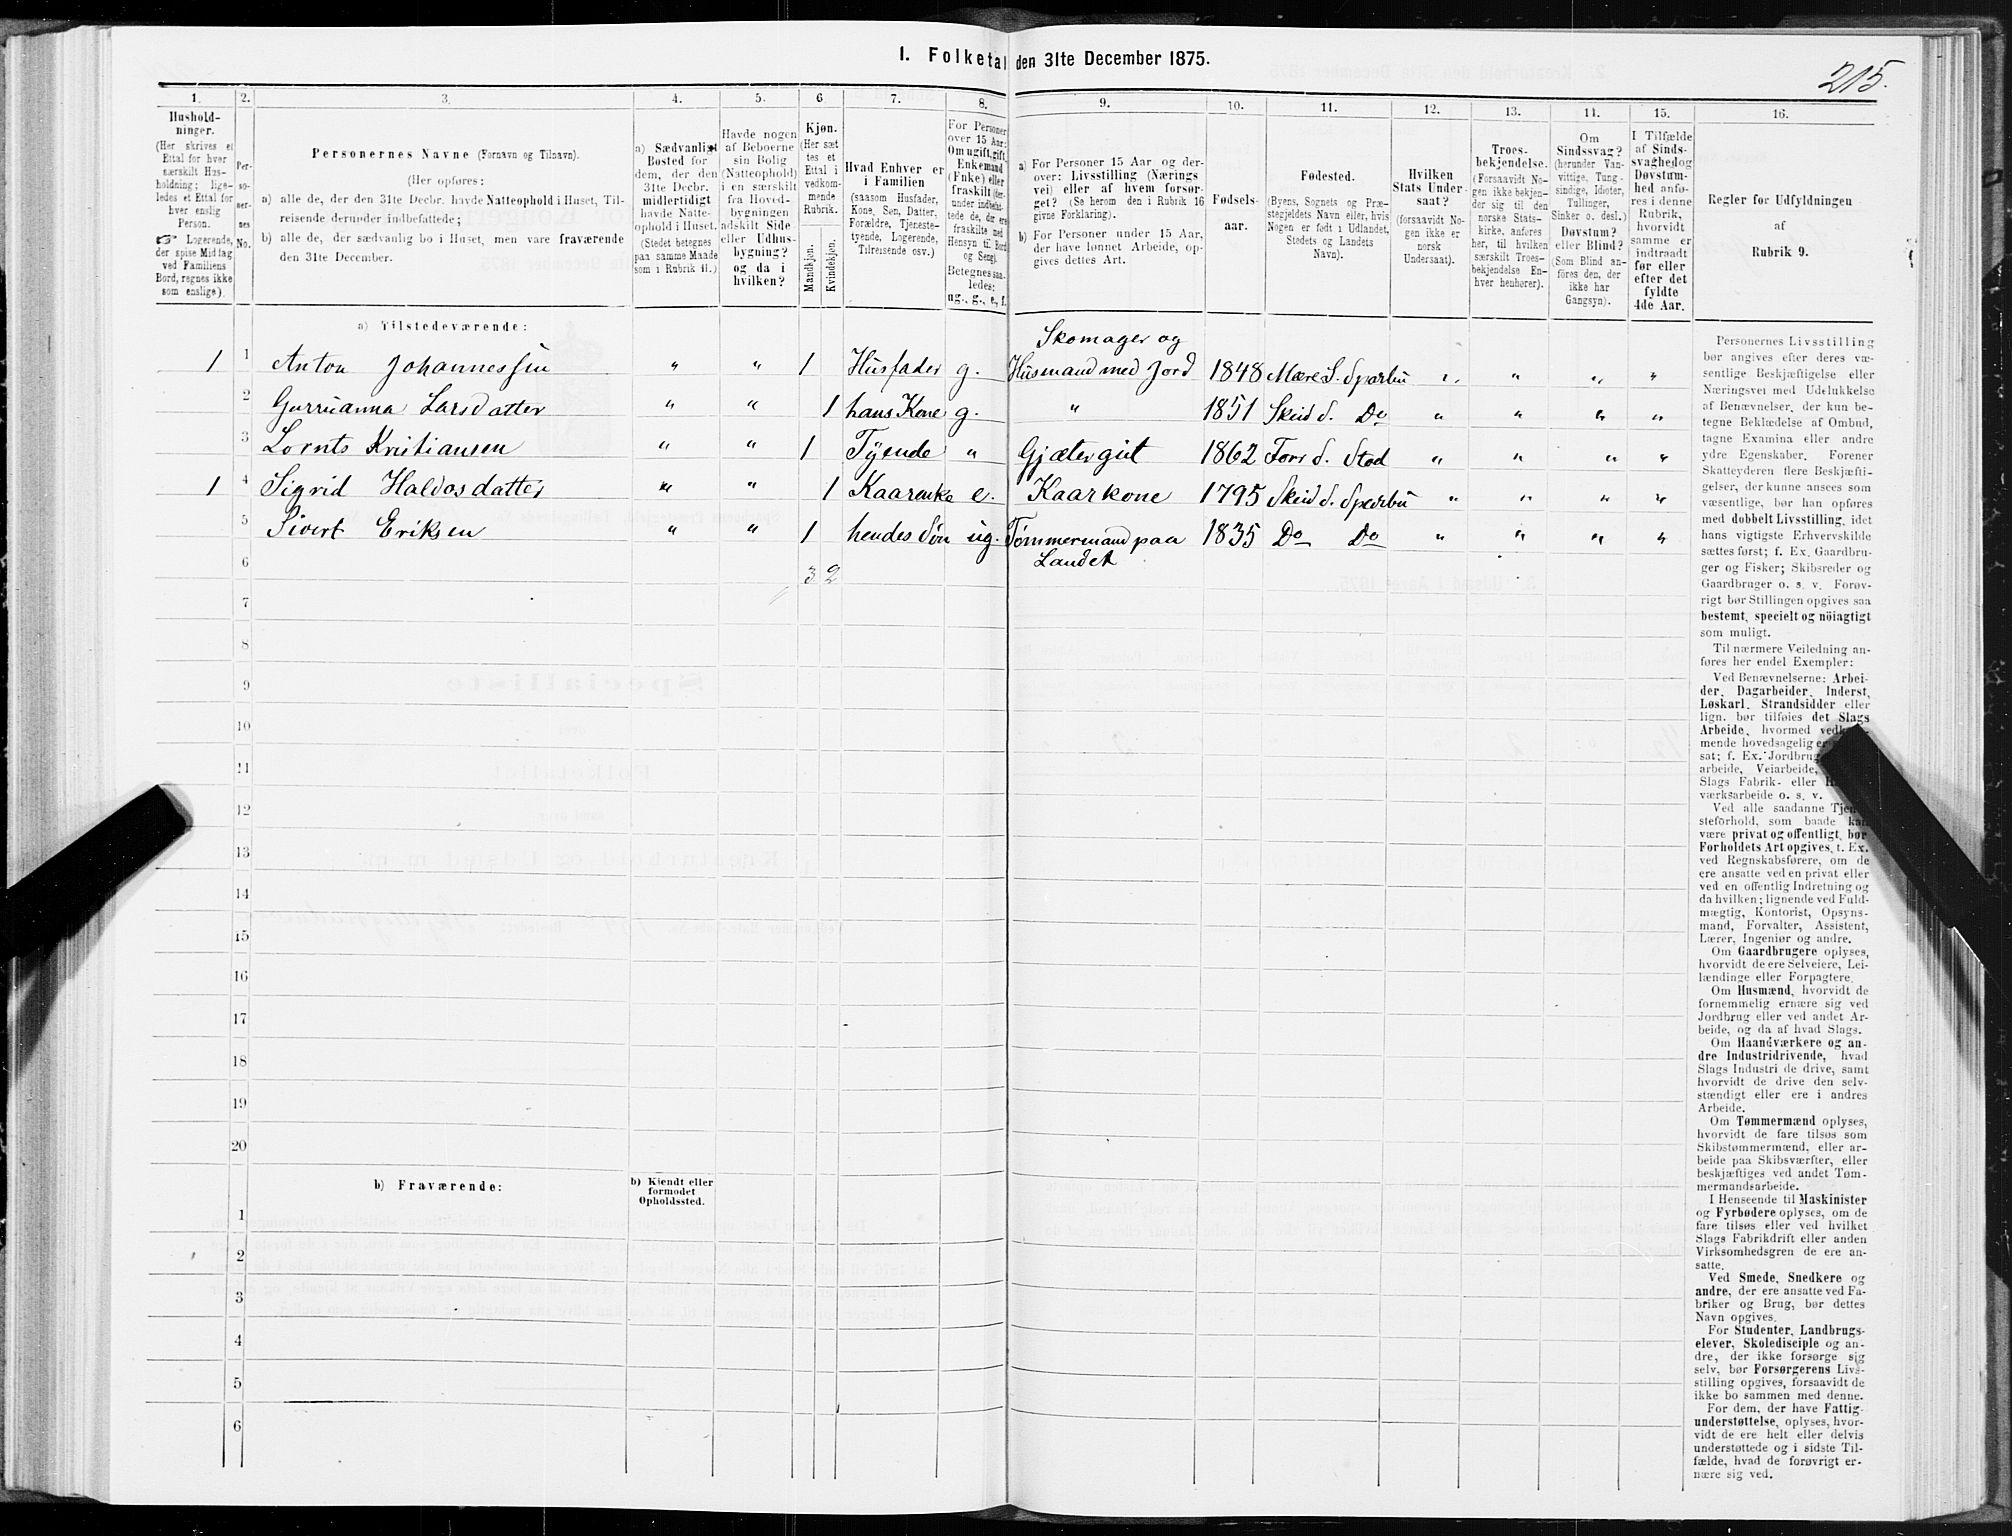 1. Folketal den 31te December 1875.
215.
1. 2. 3. 4. 5. 6 7. 8. 9. 10. 11. 12. 13. 14. 15. 16.
Hushold-
ninger.
(Her skrives et
Ettal for hver
særskilt Hus-
holdning; lige-
ledes et Ettal for
hver enslig
Person.
☞ Logerende,
der spise Middag
ved Familiens
Bord, regnes ikke
som enslige).
Per-
so-
ner-
nes
No.
Personernes Navne (Fornavn og Tilnavn).
(Her opføres:
a) alle de, der den 31te Decbr. havde Natteophold i Huset, Til-
reisende derunder indbefattede;
b) alle de, der sædvanlig bo i Huset, men vare fraværende
den 31te December.
a) Sædvanligt
Bosted for
dem, der den
31te Decbr.
midlertidigt
havde Natte-
ophold i Huset.
(Stedet betegnes
paa samme Maade
som i Rubrik 11.)
Havde nogen
af Beboerne
sin Bolig
(Natteophold)
i en særskilt
fra Hoved-
bygningen
adskilt Side-
eller Udhus-
bygning?
og da i
hvilken?
Kjøn.
(Her sæt-
tes et
Ettal i
vedkom-
mende
Rubrik.
Mandkjøn.
Kvindekjøn.
Hvad Enhver er
i Familien
(saasom Husfader,
Kone, Søn, Datter,
Forældre, Tjeneste-
tyende, Logerende,
Tilreisende osv.)
For Personer
over 15 Aar:
Om ugift, gift,
Enkemand
(Enke) eller
fraskilt (her-
under indbefat-
tede de, der ere
fraskilte med
Hensyn til Bord
og Seng).
Betegnes saa-
ledes:
ug., g., e., f.
a) For Personer 15 Aar og der-
over: Livsstilling (Nærings-
vei) eller af hvem forsør-
get? (Se herom den i Rubrik 16
givne Forklaring).
b) For Personer under 15 Aar,
der have lønnet Arbeide, op-
gives dettes Art.
Fødsels-
aar.
Fødested.
(Byens, Sognets og Præ-
stegjeldets Navn eller, hvis
Nogen er født i Udlandet,
Stedets og Landets
Navn).
Hvilken
Stats Under-
saat?
(forsaavidt No-
gen ikke er
norsk
Undersaat).
Troes-
bekjendelse.
(Forsaavidt No-
gen ikke bekjen-
der sig til den
norske Stats-
kirke, anføres
her, til hvilken
særskilt Troes-
bekjendelse En-
hver henhører).
Om
Sindssvag?
(herunder Van-
vittige, Tung-
sindige, Idioter,
Tullinger,
Sinker o. desl.)
Døvstum?
eller Blind?
(Som Blind an-
føres den, der
ikke har
Gangsyn).
I Tilfælde
af Sinds-
svaghed og
Døvstum-
hed anfø-
res i denne
Rubrik,
hvorvidt
samme er
indtraadt
før eller
efter det
fyldte
4de Aar.
Regler for Udfyldningen
af
Rubrik 9.
a) Tilstedeværende:
Skomager og
1 1 Anton Johannessen " " 1 Husfader g. Husmand med Jord 1848 Mære S. Sparbu " " " "
2 Gurruanna Larsdatter " " 1 hans Kone g. " 1851 Skeid S. Do " " " "
3 Lornts Kristiansen " " 1 Tyende " Gjætergut 1862 Fors S. Stod " " " "
1 4 Sigrid Haldosdatter " " 1 Kaarenke e. Kaarkone 1795 Skeid S. Sparbu " " " "
5 Sivert Eriksen " " 1 hendes Søn ug. Tømmermand paa 1835 Do Do " " " "
Landet
6 3 2
7
8
9
10
11
12
13
14
15
16
17
18
19
20
b) Fraværende:
b) Kjendt eller
formodet
Opholdssted.
1
2
3
4
5
6
Personernes Livsstilling
bør angives efter deres væ-
sentlige Beskjæftigelse eller
Næringsvei med Udelukkelse
af Benævnelser, der kun be-
tegne Beklædelse af Ombud,
tagne Examina eller andre
ydre Egenskaber. Forener
Skatteyderen flere Beskjæfti-
gelser, der kunne ansees som
væsentlige, bør han opføres
med dobbelt Livsstilling, idet
hans vigtigste Erhvervskilde
sættes først; f. Ex. Gaardbru-
ger og Fisker; Skibsreder og
Gaardbruger o. s. v. Forøv-
rigt bør Stillingen opgives saa
bestemt, specielt og nöiagtigt
som muligt.
Til nærmere Veiledning an-
føres her endel Exempler:
Ved Benævnelserne: Arbei-
der, Dagarbeider, Inderst,
Løskarl, Strandsidder eller
lign. bør tilføies det Slags
Arbeide, hvormed
mende hovedsagelig er
sat; f. Ex. Jordbrug
arbeide, Veiarbeide,
Slags Fabrik- eller
værksarbeide o. s. v.
Ved alle saadanne
steforhold, som baade kan
være privat og offentligt, bør
Forholdets Art opgives, t. Ex.
ved Regnskabsførere, om de
ere ansatte ved en privat eller
ved en offentlig Indretning og
da hvilken; lignende ved Fuld-
mægtig, Kontorist, Opsyns-
mand, Forvalter, Assistent,
Lærer, Ingeniør og andre.
Om Gaardbrugere oplyses,
hvorvidt de ere Selveiere, Lei-
lændinge eller Forpagtere.
Om Husmænd, hvorvidt de
fornemmelig ernære sig ved
Jordbrug eller ved andet Ar-
beide, og da af hvad Slags.
Om Haandværkere og an-
dre Industridrivende, hvad
Slags Industri de drive, samt
hvorvidt de drive den selv-
stændigt eller ere i andres
Arbeide.
Om Tømmermænd oplyses,
hvorvidt de fare tilsøs som
Skibstømmermænd, eller ar-
beide paa Skibsværfter, eller
beskjæftiges ved andet Tøm-
mermandsarbeide.
I Henseende til Maskinister
og Fyrbødere oplyses, om de
fare tilsøs eller ved hvilket
Slags Fabrikdrift eller anden
Virksomhedsgren de ere an-
satte.
Ved Smede, Snedkere og
andre, der ere ansatte ved Fa-
briker og Brug, bør dettes
Navn opgives.
For Studenter, Landbrugs-
elever, Skoledisciple og an-
dre, der ikke forsørge sig
selv, bør Forsørgerens Livs-
stilling opgives, forsaavidt de
ikke bo sammen med denne.
For dem, der have Fattig-
understøttelse, oplyses, hvor-
vidt de ere helt eller delvis
understøttede og i sidste Til-
fælde, hvad de forøvrigt er-
nære sig ved.